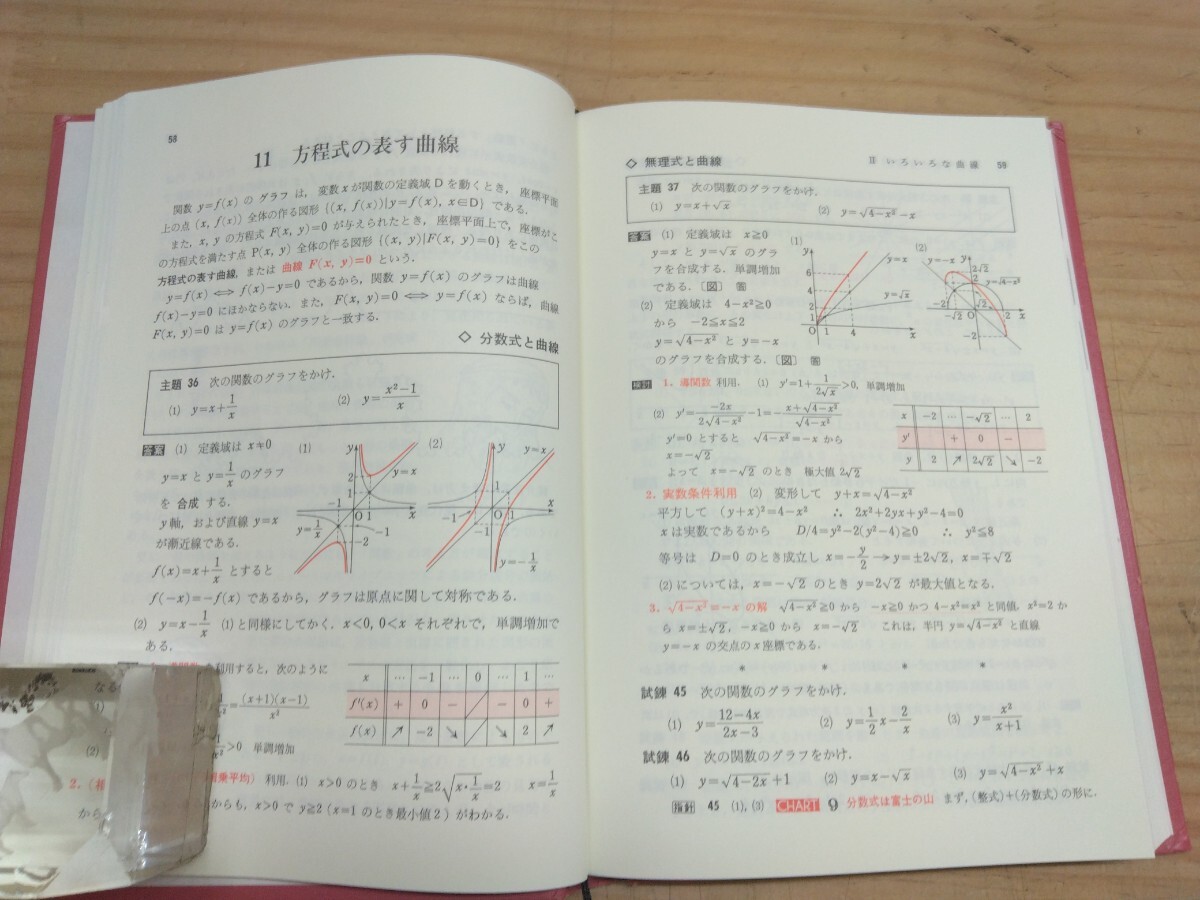 58
11 方程式の表す曲線
関数 y=f(x) の グラフ は, 変数 x が関数の定義域 D を動くとき, 座標平面
上の点 (x, f(x)) 全体の作る図形 {(x, f(x))|y=f(x), x∈D} である.
また, x, y の方程式 F(x, y)=0 が与えられたとき, 座標平面上で, 座標がこ
の方程式を満たす点 P(x, y) 全体の作る図形 {(x, y)|F(x, y)=0} をこの
方程式の表す曲線, または 曲線 F(x, y)=0 という.
y=f(x) ⟺ f(x)−y=0 であるから, 関数 y=f(x) のグラフは曲線
f(x)−y=0 にほかならない. また, F(x, y)=0 ⟺ y=f(x) ならば, 曲線
F(x, y)=0 は y=f(x) のグラフと一致する.
◇ 分数式と曲線
主題 36 次の関数のグラフをかけ.
(1) y=x+1/x (2) y=(x²−1)/x
答案 (1) 定義域は x≠0
y=x と y=1/x のグラフ
を 合成 する.
y 軸, および直線 y=x
が漸近線である.
f(x)=x+1/x とすると
(1) y 2 1 −1 O 1 x y=x y=1/x −1 −2
(2) y y=x 1 −1 O 1 x −1 y=−1/x
f(−x)=−f(x) であるから, グラフは原点に関して対称である.
(2) y=x−1/x (1)と同様にしてかく. x<0, 0<x それぞれで, 単調増加で
ある.
利用すると, 次のように
なる
(1)
=(x+1)(x−1)/x²
(2)
>0 単調増加
x … −1 … 0 … 1 …
f'(x) + 0 − − 0 +
f(x) ↗ −2 ↘ ↘ 2 ↗
2. (相 乗平均) 利用. (1) x>0 のとき x+1/x≧2√(x・1/x)=2 x=1/x
から からも, x>0 で y≧2 (x=1 のとき最小値 2) がわかる.
II いろいろな曲線 59
◇ 無理式と曲線
主題 37 次の関数のグラフをかけ.
(1) y=x+√x (2) y=√(4−x²)−x
答案 (1) 定義域は x≧0
y=x と y=√x のグラ
フを合成する. 単調増加
である. [図] 答
(2) 定義域は 4−x²≧0
から −2≦x≦2
y=√(4−x²) と y=−x
のグラフを合成する. [図] 答
(1) y 6 4 2 O 1 4 x y=x y=√x
(2) y=−x y 2√2 y=√(4−x²) 2 −2 −√2 O 2 x −2
検討 1. 導関数 利用. (1) y'=1+1/(2√x)>0, 単調増加
(2) y'=−2x/(2√(4−x²))−1=−(x+√(4−x²))/√(4−x²)
y'=0 とすると √(4−x²)=−x から
x=−√2
よって x=−√2 のとき 極大値 2√2
x −2 … −√2 … 2
y' + 0 −
y 2 ↗ 2√2 ↘ −2
2. 実数条件利用 (2) 変形して y+x=√(4−x²)
平方して (y+x)²=4−x² ∴ 2x²+2yx+y²−4=0
x は実数であるから D/4=y²−2(y²−4)≧0 ∴ y²≦8
等号は D=0 のとき成立し x=−y/2 → y=±2√2, x=∓√2
(2)については, x=−√2 のとき y=2√2 が最大値となる.
3. √(4−x²)=−x の解 √(4−x²)≧0 から −x≧0 かつ 4−x²=x² と同値. x²=2 か
ら x=±√2, −x≧0 から x=−√2 これは, 半円 y=√(4−x²) と直線
y=−x の交点の x 座標である.
* * * *
試錬 45 次の関数のグラフをかけ.
(1) y=(12−4x)/(2x−3) (2) y=1/2 x−2/x (3) y=x²/(x+1)
試錬 46 次の関数のグラフをかけ.
(1) y=√(4−2x)+1 (2) y=x−√x (3) y=√(4−x²)+x
指針 45 (1), (3) CHART 9 分数式は富士の山 まず, (整式)+(分数式) の形に.